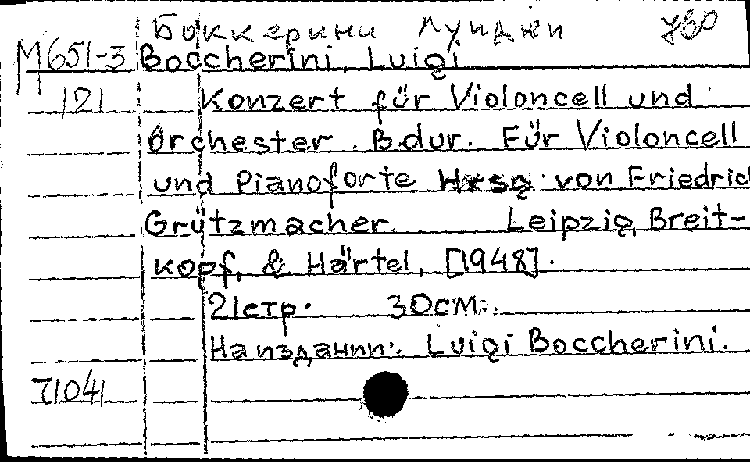 Боккерини Луиджи 780
М651-3 Boccherini, Luigi
121 Konzert für Violoncell und
Orchester. B.dur. Für Violoncell
und Pianoforte Hrsg. von Friedrich
Grützmacher. Leipzig, Breit-
kopf, & Härtel, [1948].
21стр. 30см.
На издании: Luigi Boccherini.
71041